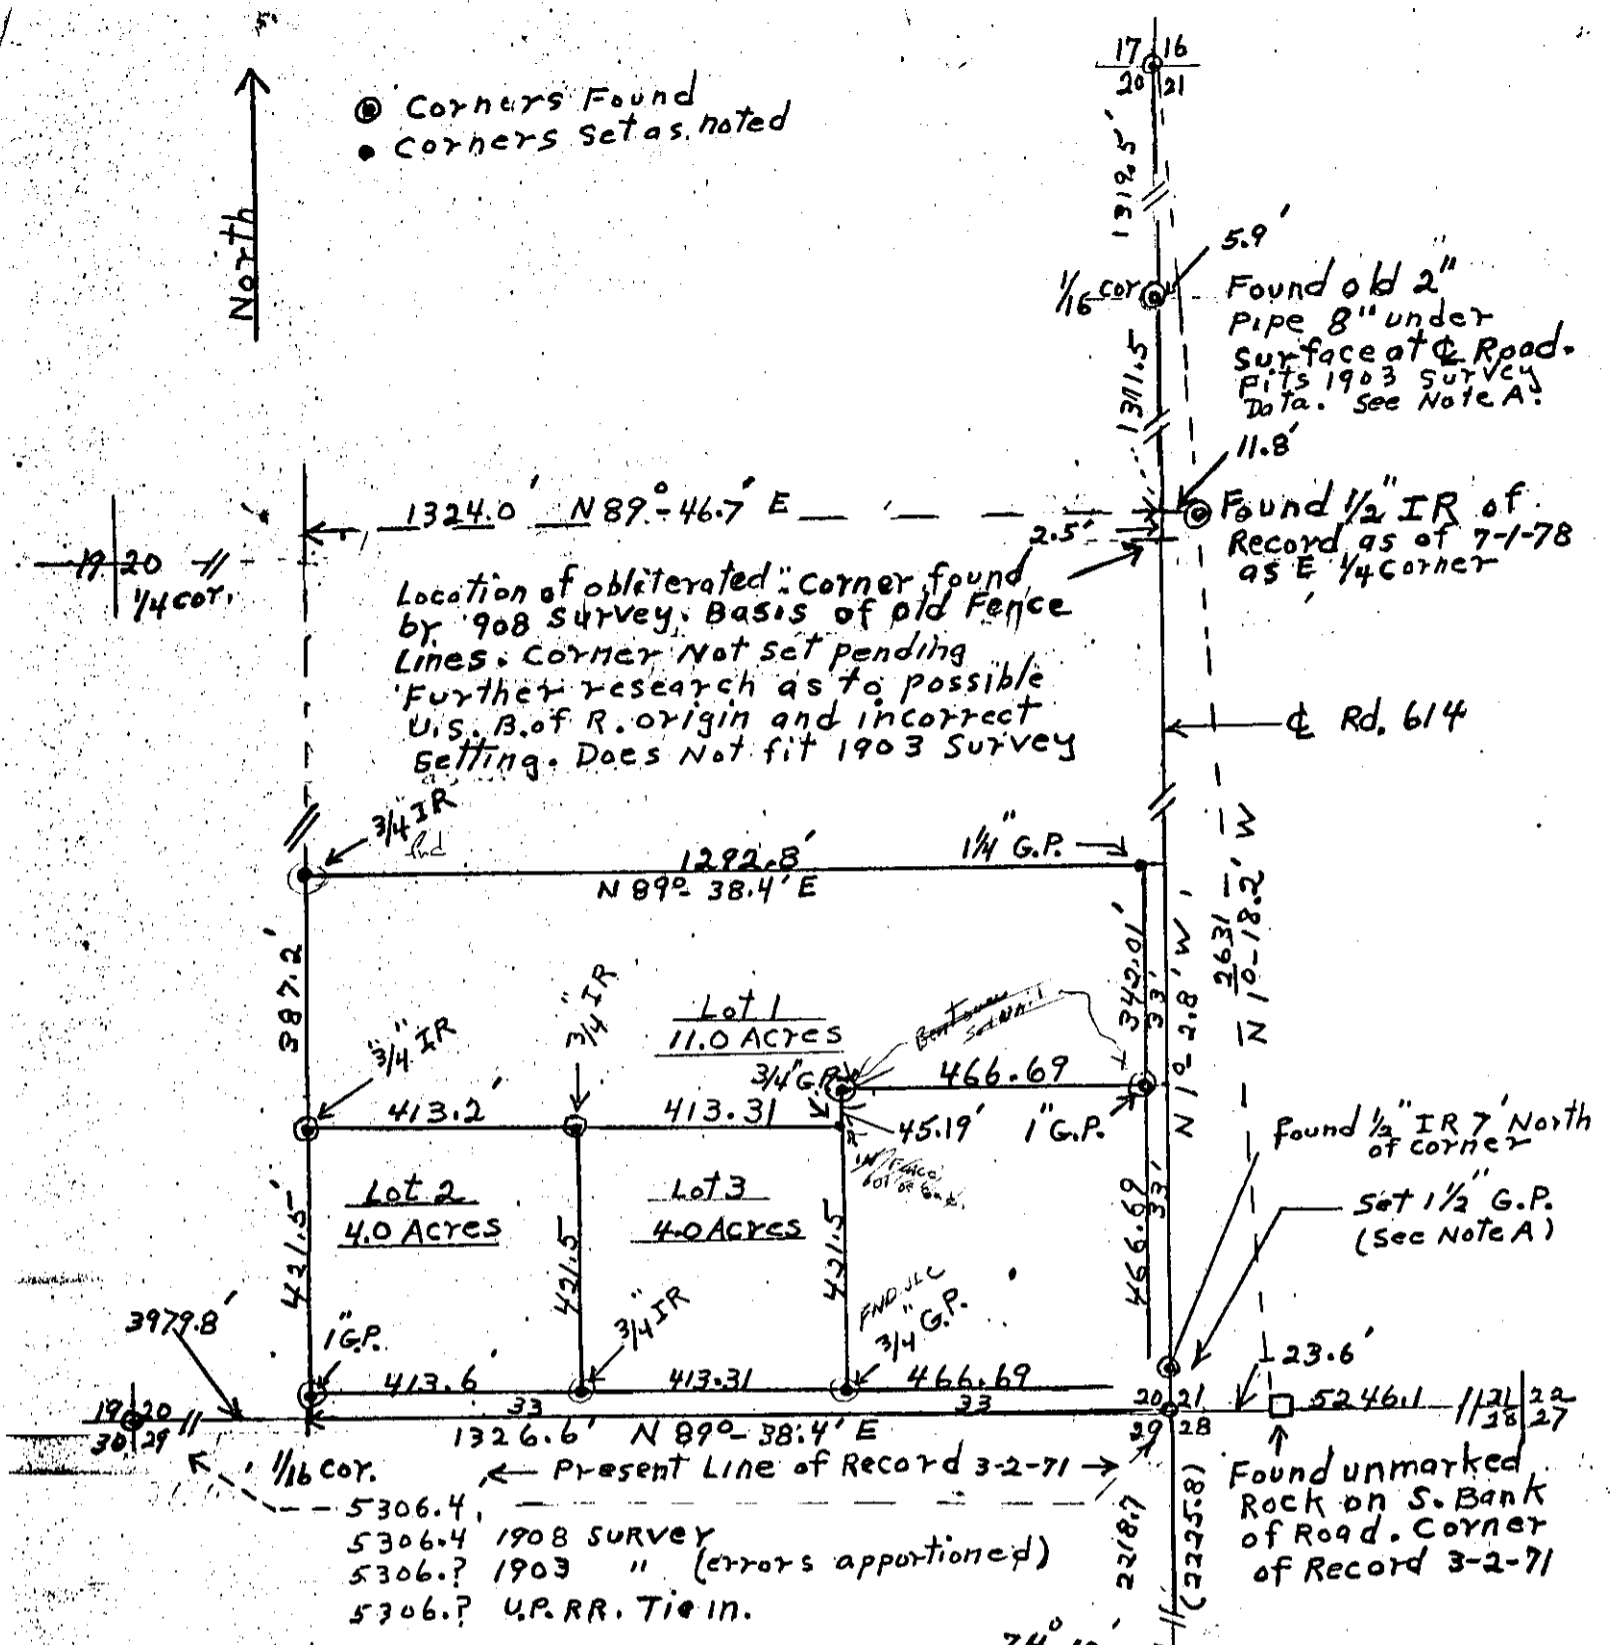 17 16
20 21
Corners Found
Corners Set as noted
North
1312.5'
5.9'
1/16 cor.
Found old 2"
Pipe 8" under
Surface at ℄ Road.
Fits 1903 Survey
Data. See Note A.
1311.5
11.8'
1324.0' N 89°-46.7' E
2.5'
Found 1/2" IR of
Record as of 7-1-78
as E 1/4 Corner
19 20
1/4 cor.
Location of obliterated Corner found
by 1908 Survey. Basis of old Fence
Lines. Corner Not set pending
Further research as to possible
U.S. B. of R. origin and incorrect
Setting. Does Not fit 1903 Survey
℄ Rd. 614
3/4" IR
fnd
1292.8'
N 89°-38.4' E
1 1/4" G.P.
2631
N 1°-18.2' W
387.2'
342.01'
33'
N 1°-2.8' W
3/4" IR
3/4" IR
Lot 1
11.0 Acres
Set Nail
3/4" G.P.
466.69
413.2'
413.31
45.19'
1" G.P.
found 1/2" IR 7' North
of corner
Lot 2
4.0 Acres
Lot 3
4.0 Acres
Set 1 1/2" G.P.
(See Note A)
421.5'
421.5
421.5
466.69
33'
3979.8'
1" G.P.
3/4" IR
FND JLC
3/4" G.P.
23.6'
413.6'
413.31
466.69
33
33
19 20
30 29
20 21
29 28
5246.1
21 22
28 27
1326.6' N 89°-38.4' E
1/16 cor.
← Present Line of Record 3-2-71 →
5306.4
5306.4 1908 Survey
5306.? 1903 " (errors apportioned)
5306.? U.P. RR. Tie in.
2218.7
(2225.8)
Found unmarked
Rock on S. Bank
of Road. Corner
of Record 3-2-71